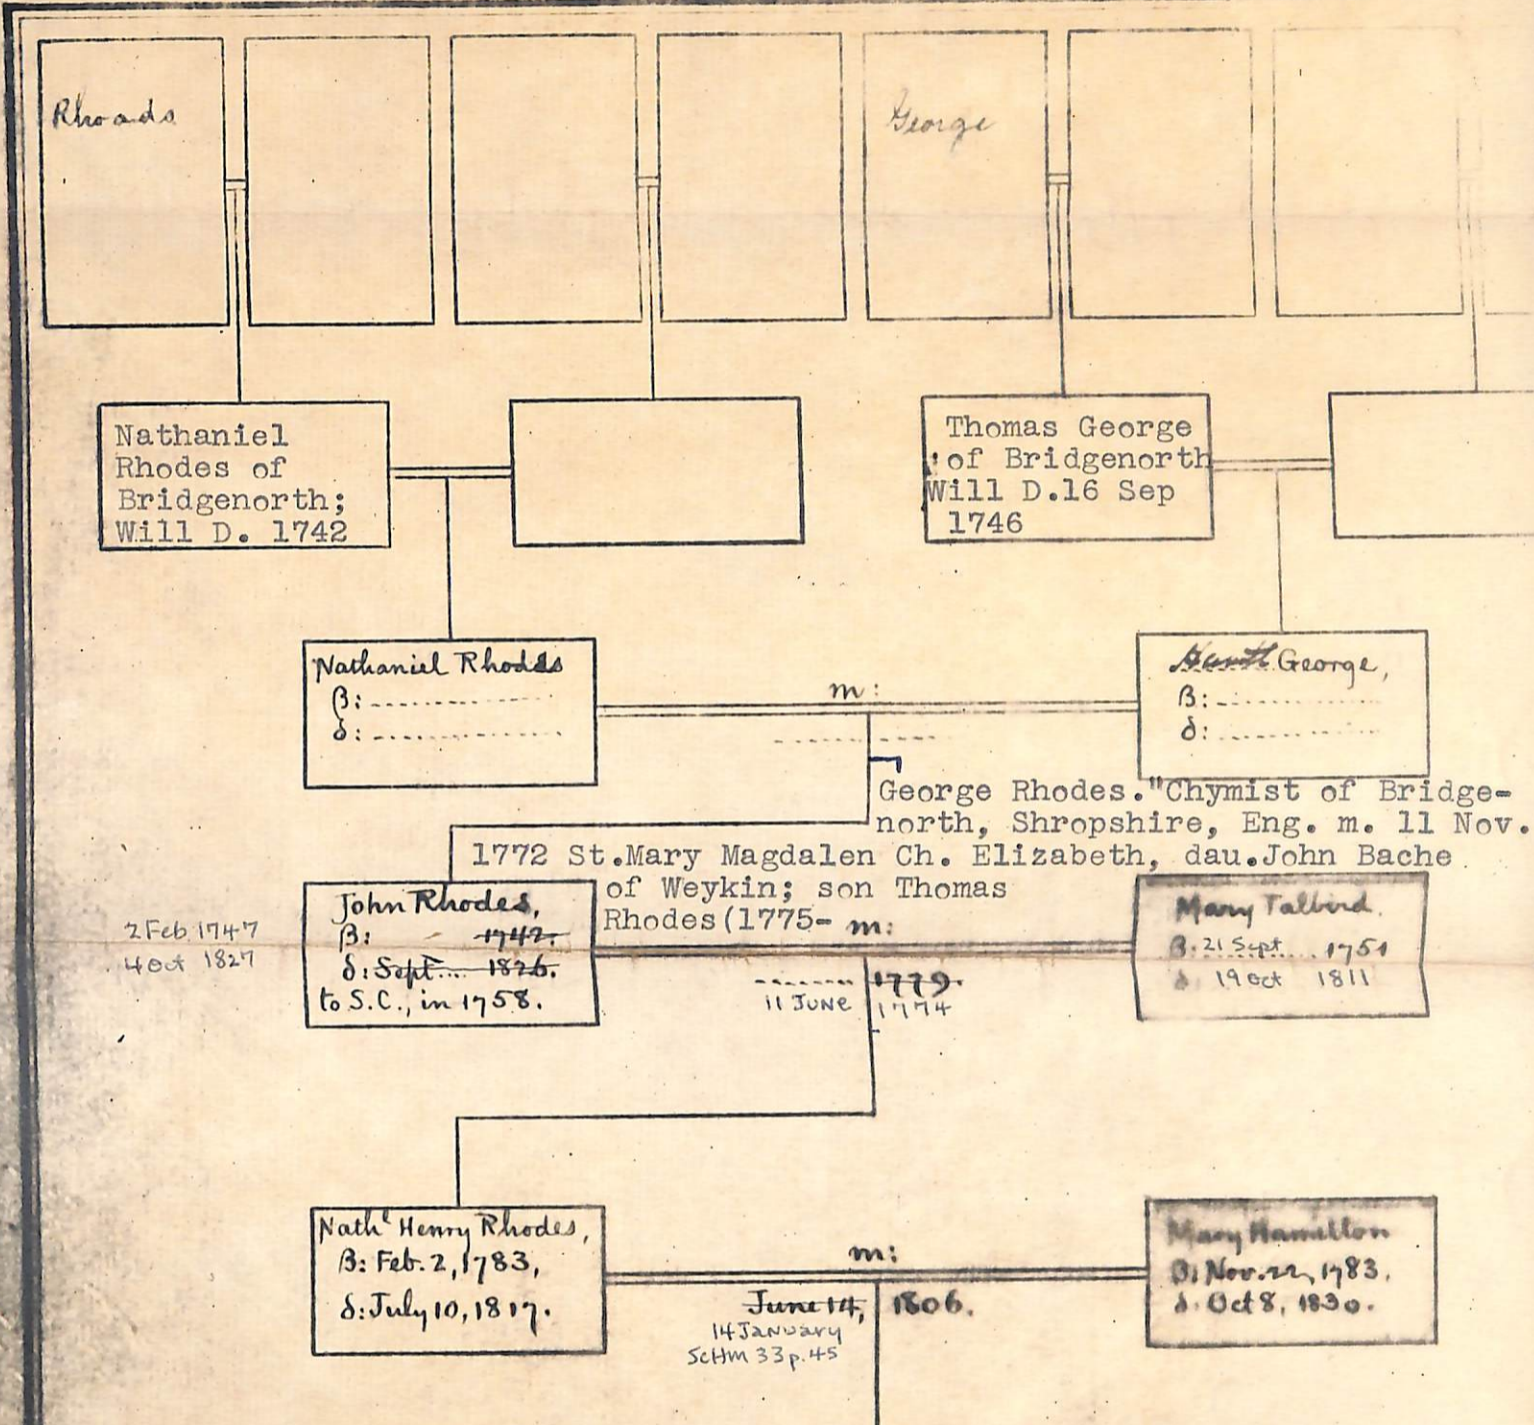 Rhoads
George
Nathaniel
Rhodes of
Bridgenorth;
Will D. 1742
Thomas George
of Bridgenorth
Will D.16 Sep
1746
Nathaniel Rhodes
B:
d:
m:
George,
B:
d:
George Rhodes."Chymist of Bridge-
north, Shropshire, Eng. m. 11 Nov.
1772 St.Mary Magdalen Ch. Elizabeth, dau.John Bache
of Weykin; son Thomas
Rhodes(1775-
2 Feb 1747
4 Oct 1827
John Rhodes,
B: 1742.
d: Sept.... 1826.
to S.C., in 1758.
m:
1779.
11 JUNE 1774
Mary Talbird.
B. 21 Sept.... 1751
d 19 Oct 1811
Nathl Henry Rhodes,
B: Feb. 2, 1783,
d: July 10, 1817.
m:
June 14, 1806.
14 January
ScHM 33 p. 45
Mary Hamilton
B: Nov. 22, 1783.
d. Oct 8, 1830.